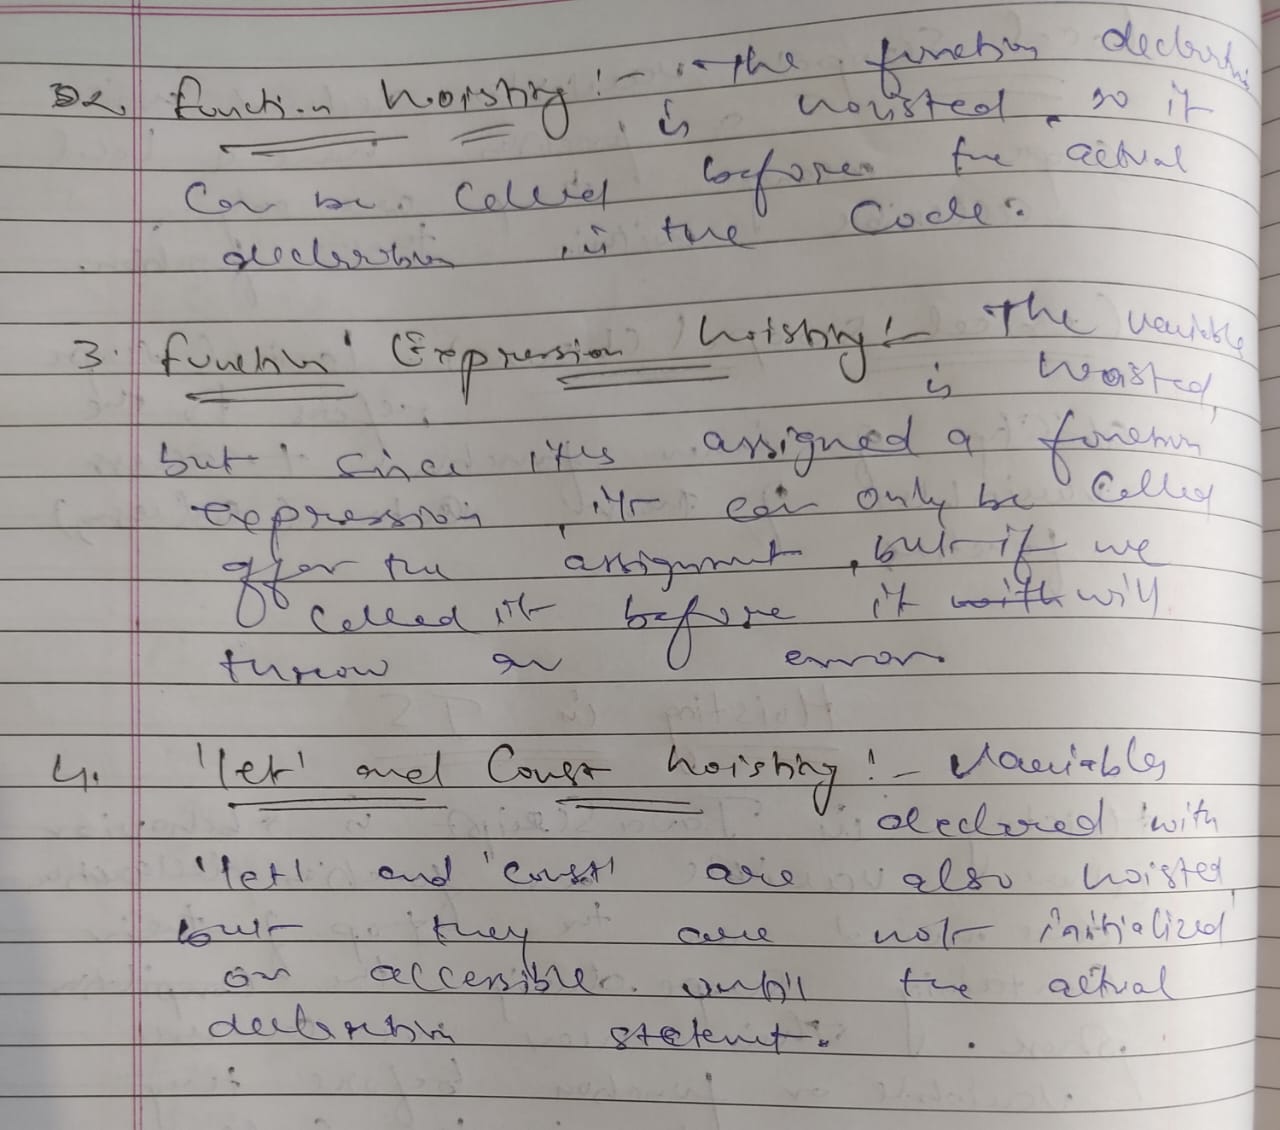 2. function hoisting :- The function declaration
is hoisted so it
can be called before the actual
declaration in the code.
3. function Expression hoisting :- The variable
is hoisted,
but since it's assigned a function
expression, it can only be called
after the assignment, but if we
called it before it with will
throw an error.
4. 'let' and Const hoisting :- Variables
declared with
'let' and 'const' are also hoisted,
but they are not initialized
or accessible until the actual
declaration statement.